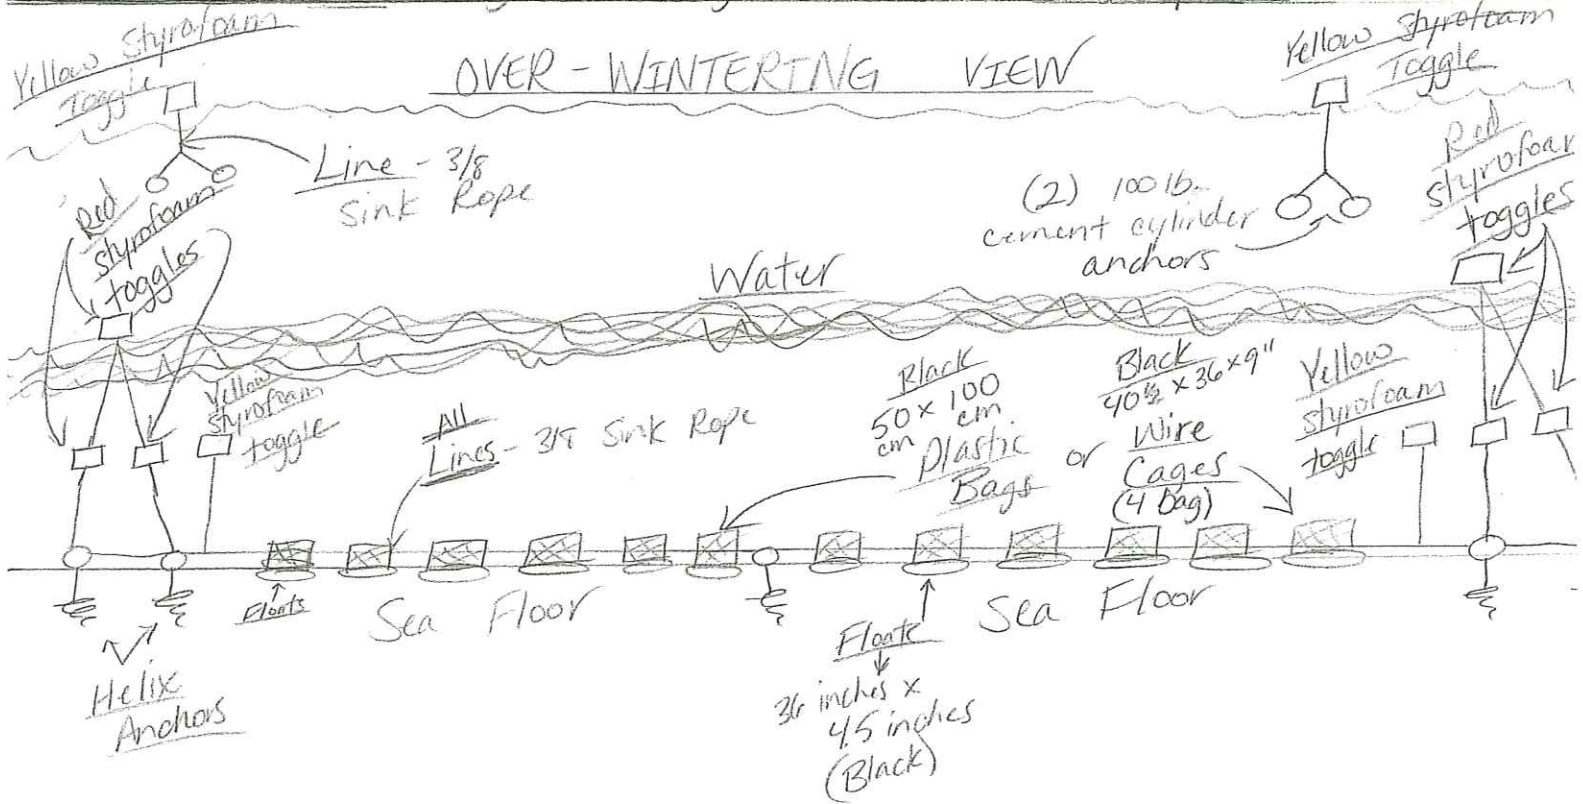 Yellow Styrofoam
Toggle
OVER-WINTERING VIEW
Yellow Styrofoam
Toggle
Line - 3/8
Sink Rope
Red
styrofoam
toggles
(2) 100 lb.
cement cylinder
anchors
Red
styrofoam
toggles
Water
Yellow
styrofoam
toggle
All
Lines - 3/8 Sink Rope
Black
50 x 100
cm cm
Plastic
Bags
or
Black
40½ x 36 x 9"
Wire
Cages
(4 bag)
Yellow
styrofoam
toggle
Floats
Sea Floor
Sea Floor
Helix
Anchors
Floats
36 inches x
4.5 inches
(Black)